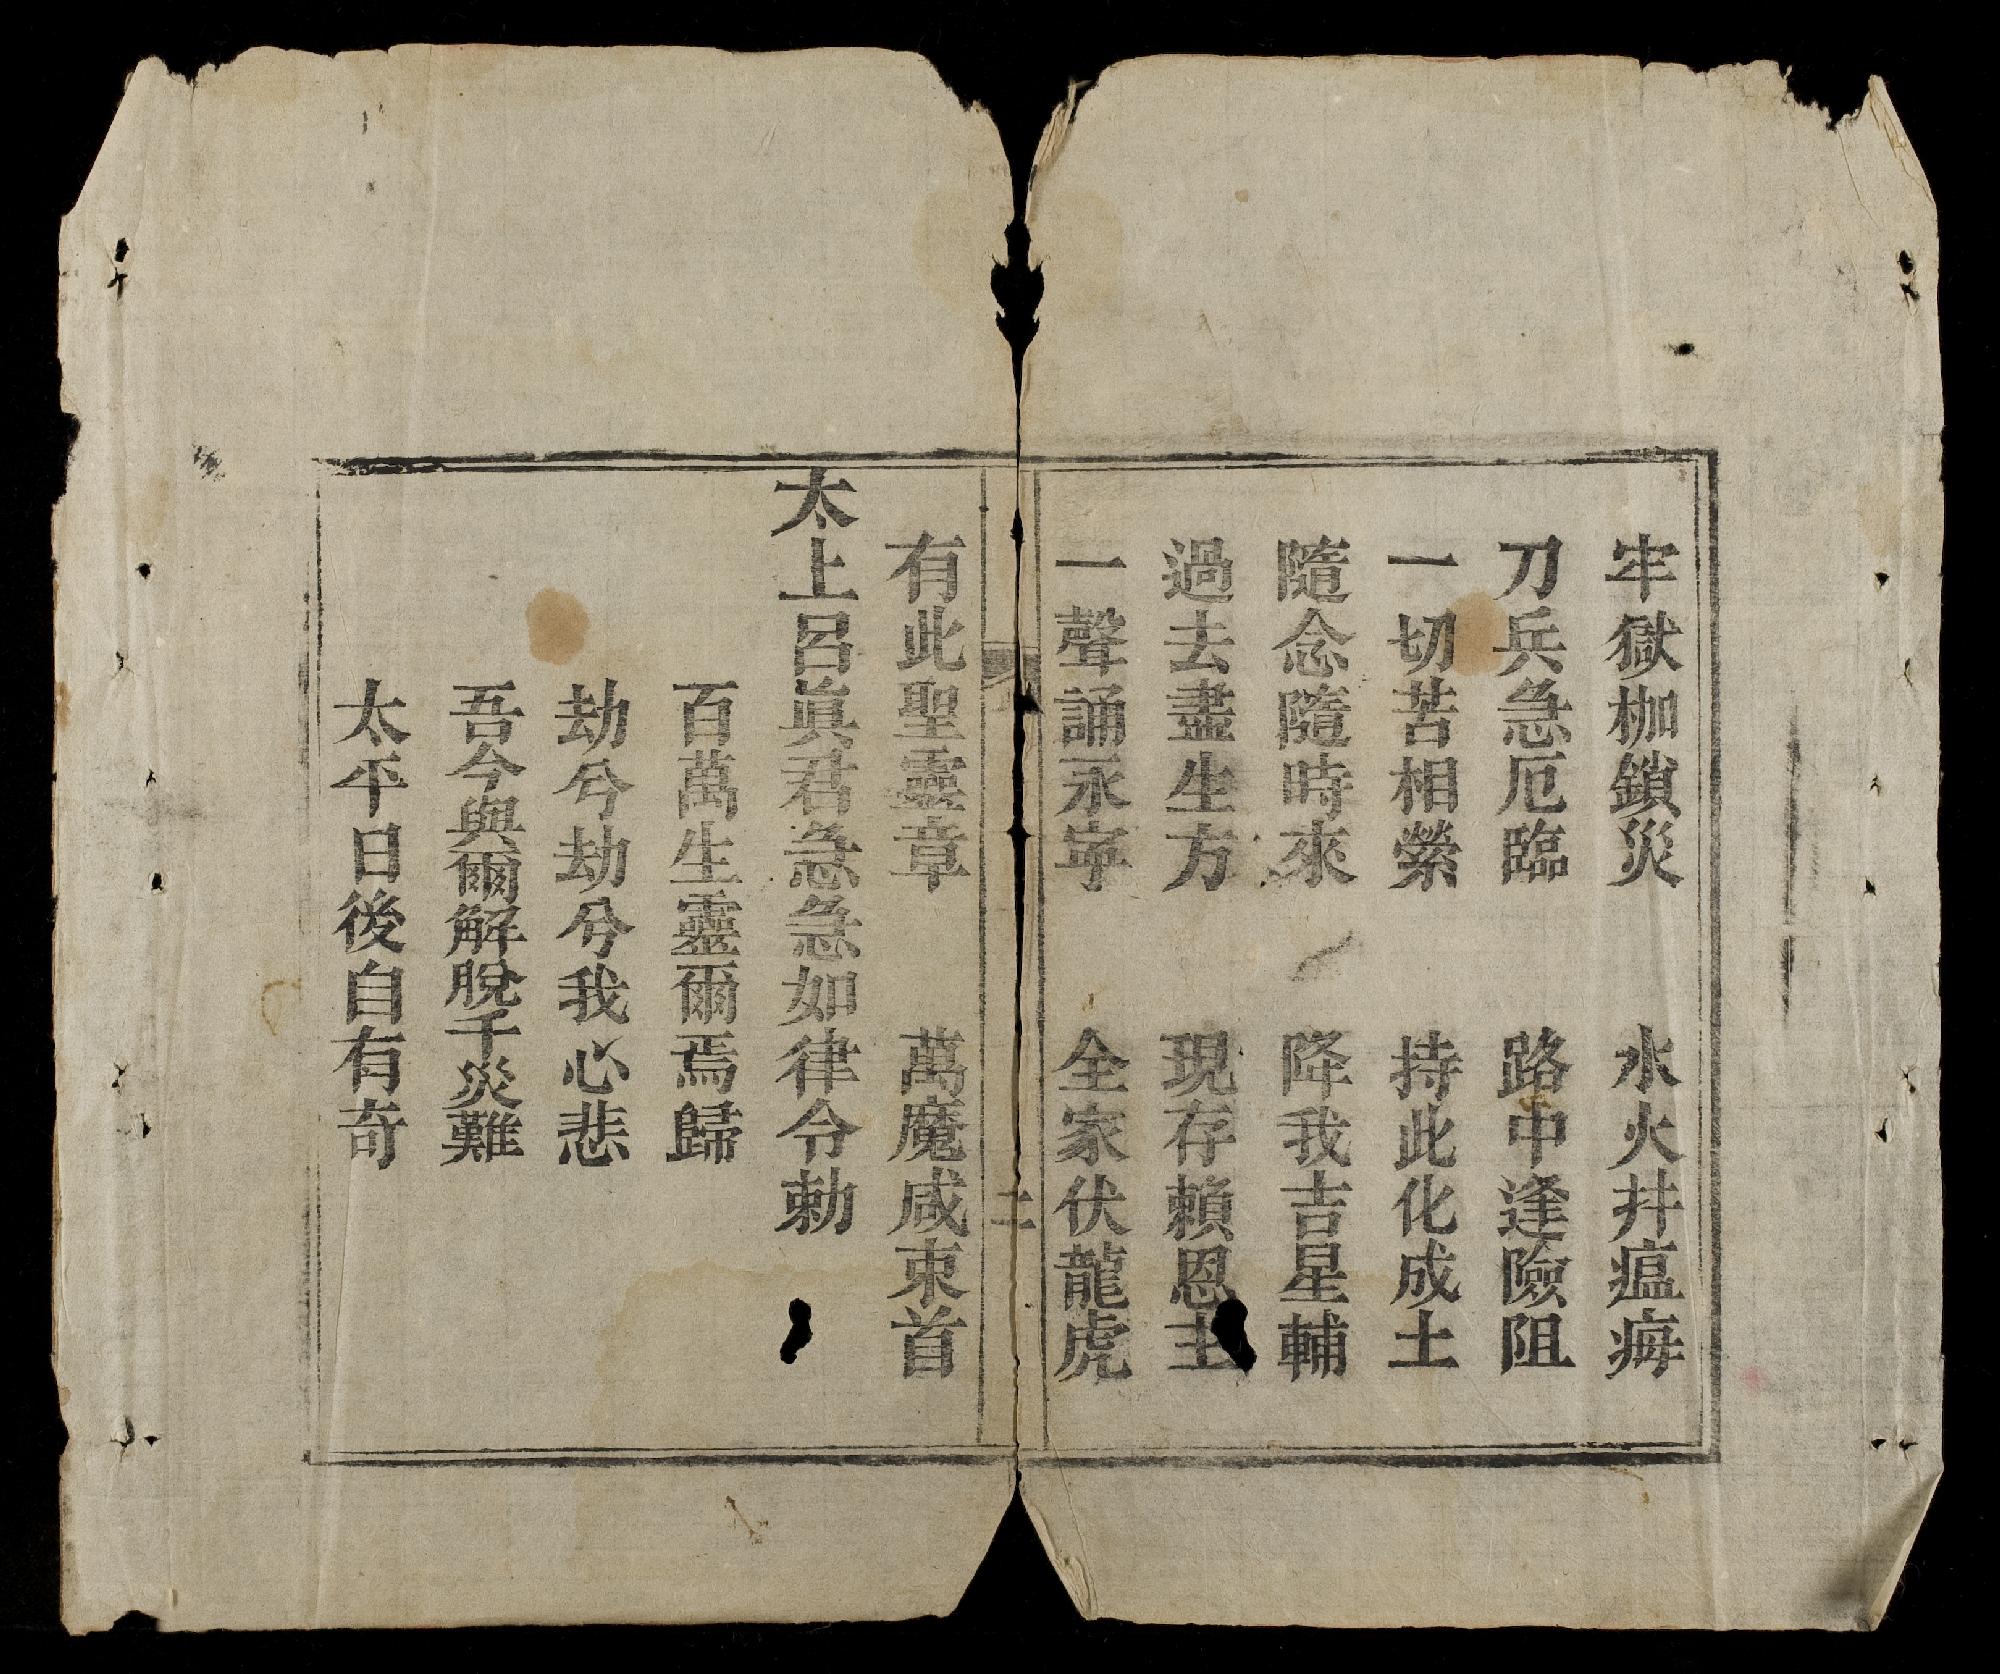 牢獄枷鎖災　水火井瘟㾂
刀兵急厄臨　路中逢險阻
一切苦相縈　持此化成土
隨念隨時來　降我吉星輔
過去盡生方　現存賴恩主
一聲誦永寕　全家伏龍虎
二
有此聖靈章　萬魔咸束首
太上呂眞君急急如律令勅
百萬生靈爾焉歸
劫兮劫兮我心悲
吾今與爾解脫千災難
太平日後自有奇